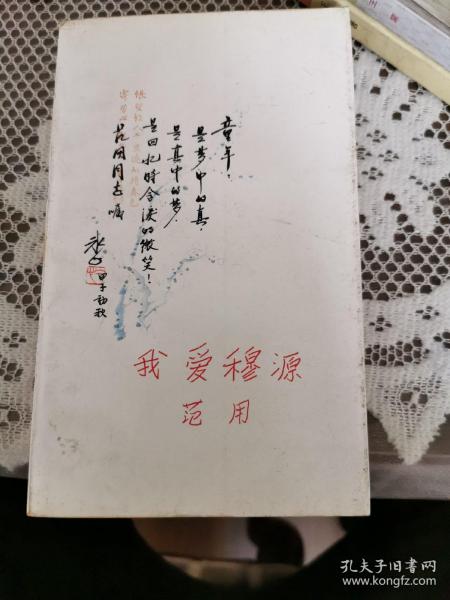 童年！
是梦中的真，
是真中的梦，
是回忆时含泪的微笑！
范用同志嘱
冰心
甲子初秋
我爱穆源
范用
孔夫子旧书网
www.kongfz.com